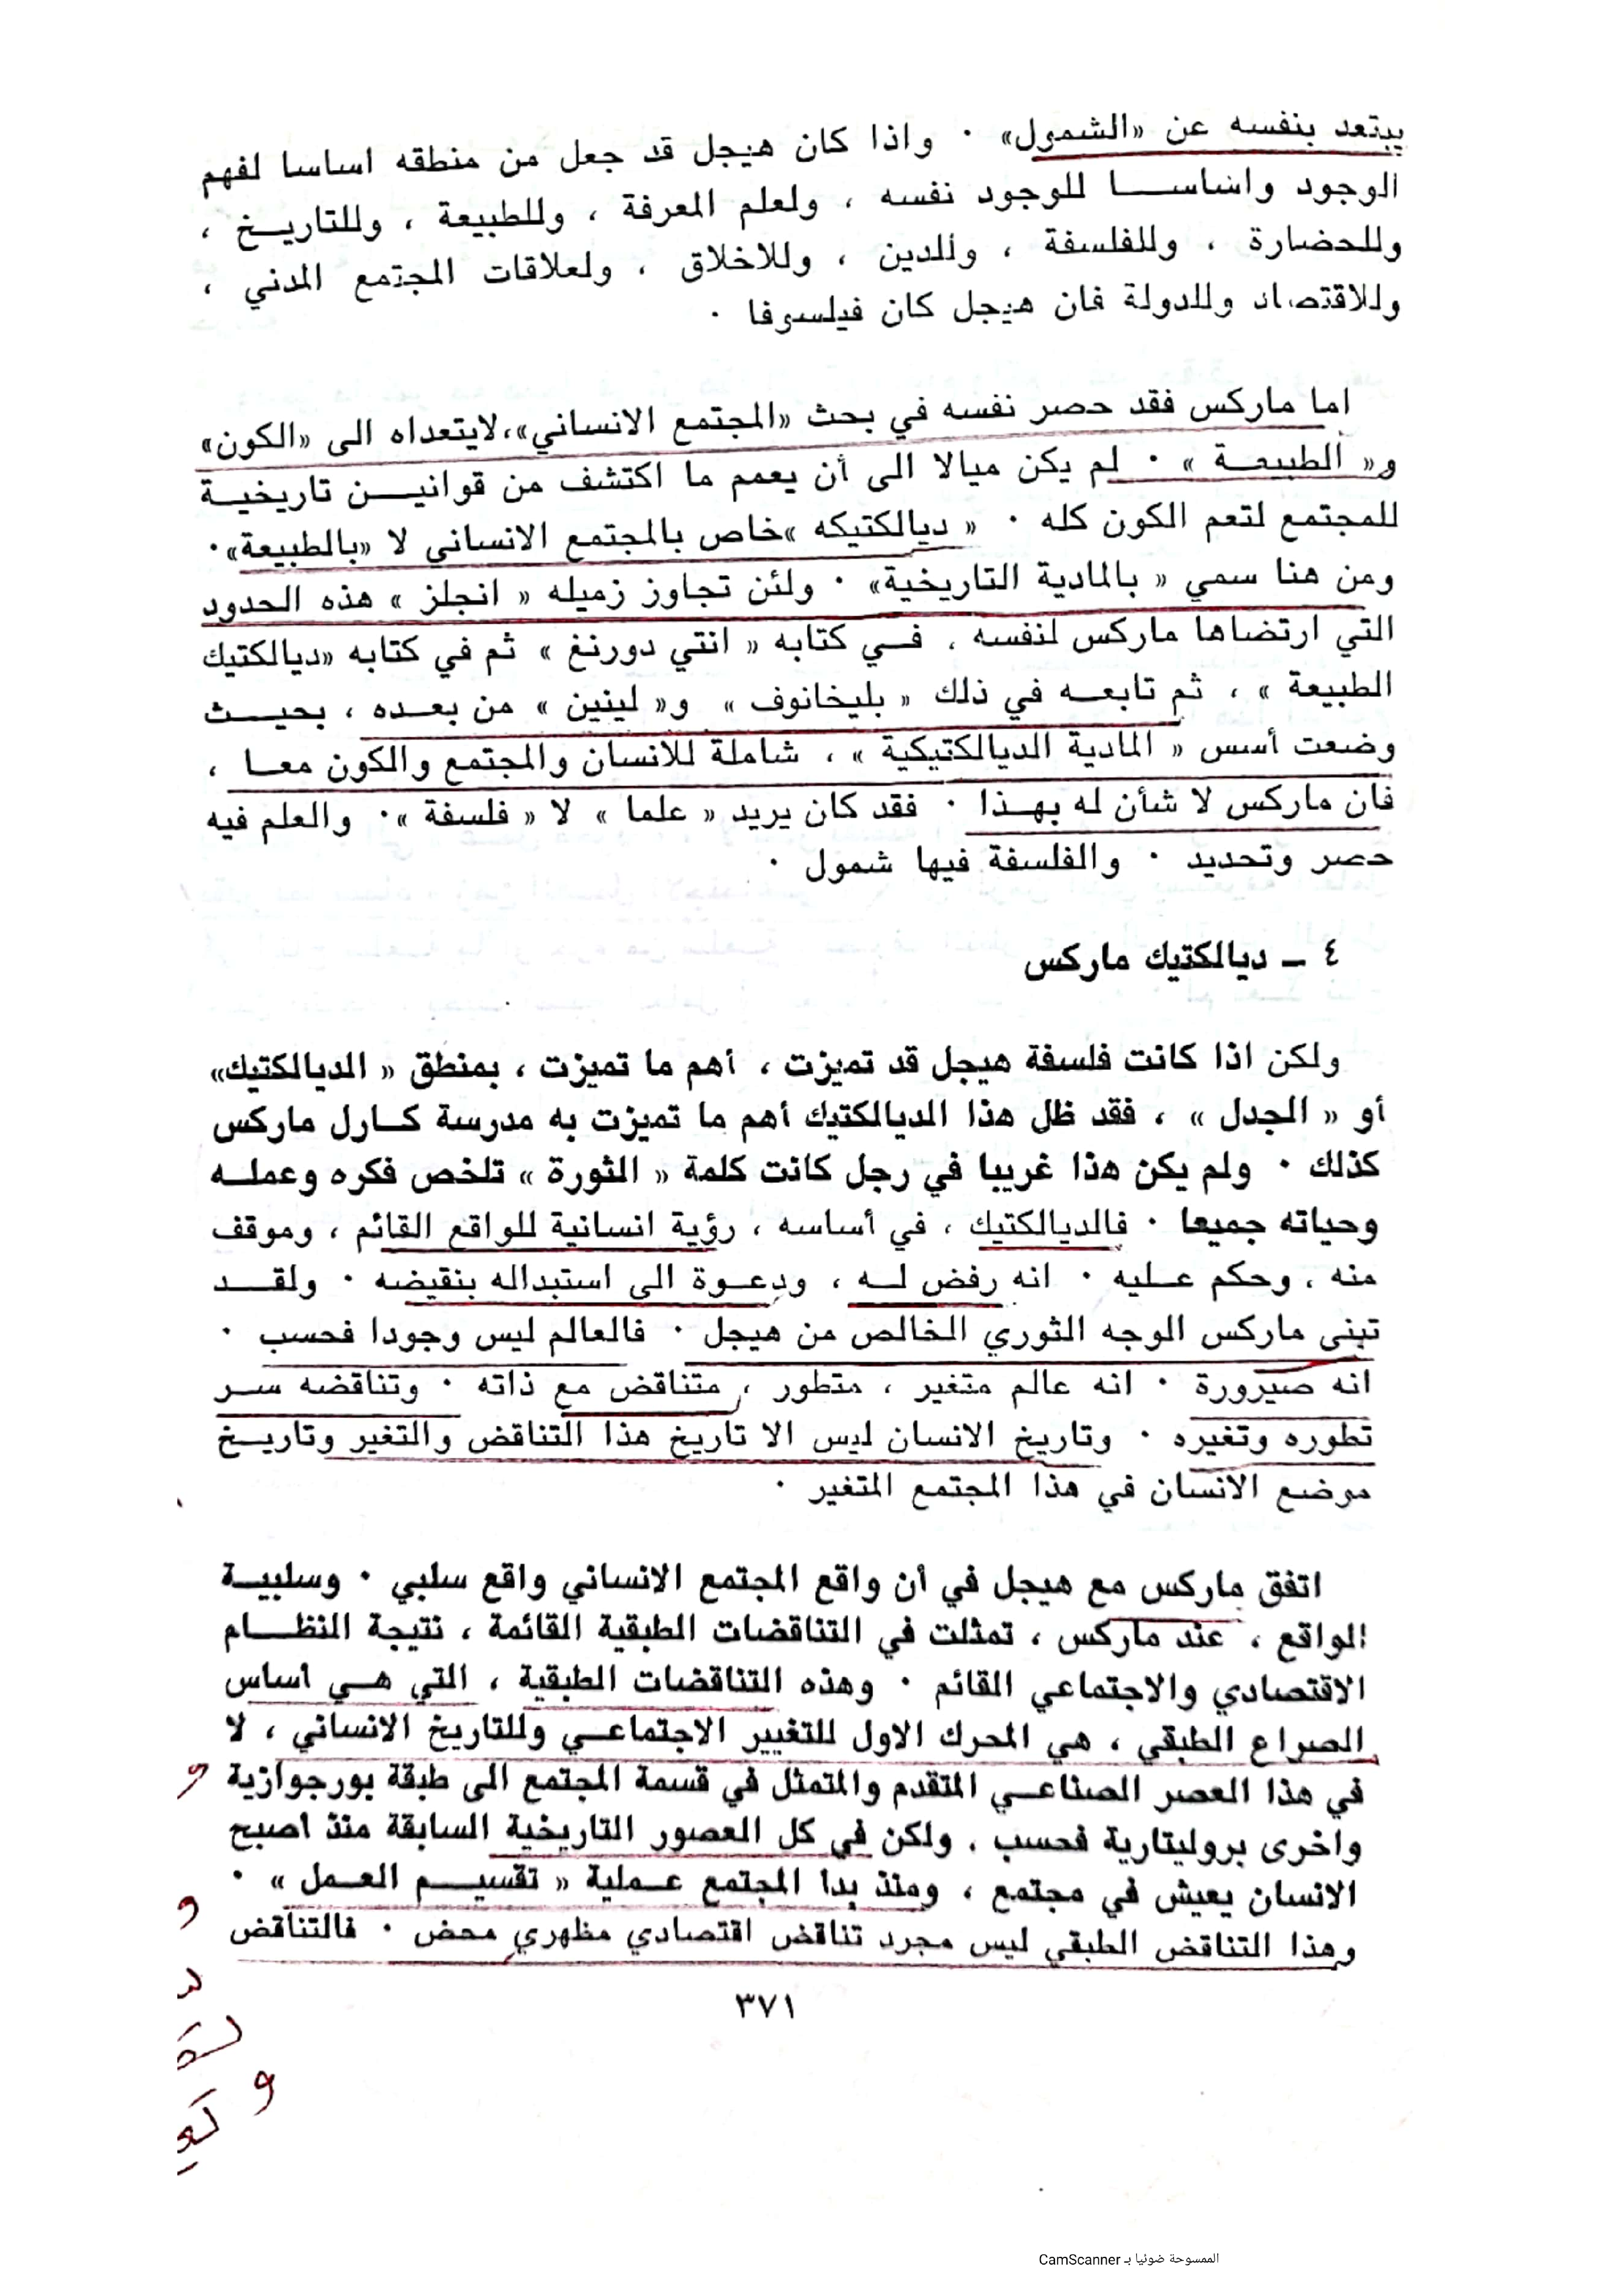 يبتعد بنفسه عن «الشمول» · واذا كان هيجل قد جعل من منطقه اساسا لفهم
الوجود واساسا للوجود نفسه ، ولعلم المعرفة ، وللطبيعة ، وللتاريخ ،
وللحضارة ، وللفلسفة ، وللدين ، وللاخلاق ، ولعلاقات المجتمع المدني ،
وللاقتصاد وللدولة فان هيجل كان فيلسوفا ·
اما ماركس فقد حصر نفسه في بحث «المجتمع الانساني»،لايتعداه الى «الكون»
و« الطبيعة » · لم يكن ميالا الى أن يعمم ما اكتشف من قوانين تاريخية
للمجتمع لتعم الكون كله · « ديالكتيكه »خاص بالمجتمع الانساني لا «بالطبيعة»·
ومن هنا سمي « بالمادية التاريخية» · ولئن تجاوز زميله « انجلز » هذه الحدود
التي ارتضاها ماركس لنفسه ، في كتابه « انتي دورنغ » ثم في كتابه «ديالكتيك
الطبيعة » ، ثم تابعه في ذلك « بليخانوف » و« لينين » من بعده ، بحيث
وضعت أسس « المادية الديالكتيكية » ، شاملة للانسان والمجتمع والكون معا ،
فان ماركس لا شأن له بهذا · فقد كان يريد « علما » لا « فلسفة »· والعلم فيه
حصر وتحديد · والفلسفة فيها شمول ·
٤ – ديالكتيك ماركس
ولكن اذا كانت فلسفة هيجل قد تميزت ، أهم ما تميزت ، بمنطق « الديالكتيك»
أو « الجدل » ، فقد ظل هذا الديالكتيك أهم ما تميزت به مدرسة كارل ماركس
كذلك · ولم يكن هذا غريبا في رجل كانت كلمة « الثورة » تلخص فكره وعمله
وحياته جميعا · فالديالكتيك ، في أساسه ، رؤية انسانية للواقع القائم ، وموقف
منه ، وحكم عليه · انه رفض له ، ودعوة الى استبداله بنقيضه · ولقد
تبنى ماركس الوجه الثوري الخالص من هيجل · فالعالم ليس وجودا فحسب ·
انه صيرورة · انه عالم متغير ، متطور ، متناقض مع ذاته · وتناقضه سر
تطوره وتغيره · وتاريخ الانسان ليس الا تاريخ هذا التناقض والتغير وتاريخ
موضع الانسان في هذا المجتمع المتغير ·
اتفق ماركس مع هيجل في أن واقع المجتمع الانساني واقع سلبي · وسلبية
الواقع ، عند ماركس ، تمثلت في التناقضات الطبقية القائمة ، نتيجة النظام
الاقتصادي والاجتماعي القائم · وهذه التناقضات الطبقية ، التي هي اساس
الصراع الطبقي ، هي المحرك الاول للتغيير الاجتماعي وللتاريخ الانساني ، لا
في هذا العصر الصناعي المتقدم والمتمثل في قسمة المجتمع الى طبقة بورجوازية
واخرى بروليتارية فحسب ، ولكن في كل العصور التاريخية السابقة منذ اصبح
الانسان يعيش في مجتمع ، ومنذ بدا المجتمع عملية « تقسيم العمل » ·
وهذا التناقض الطبقي ليس مجرد تناقض اقتصادي مظهري محض · فالتناقض
٣٧١
الممسوحة ضوئيا بـ CamScanner